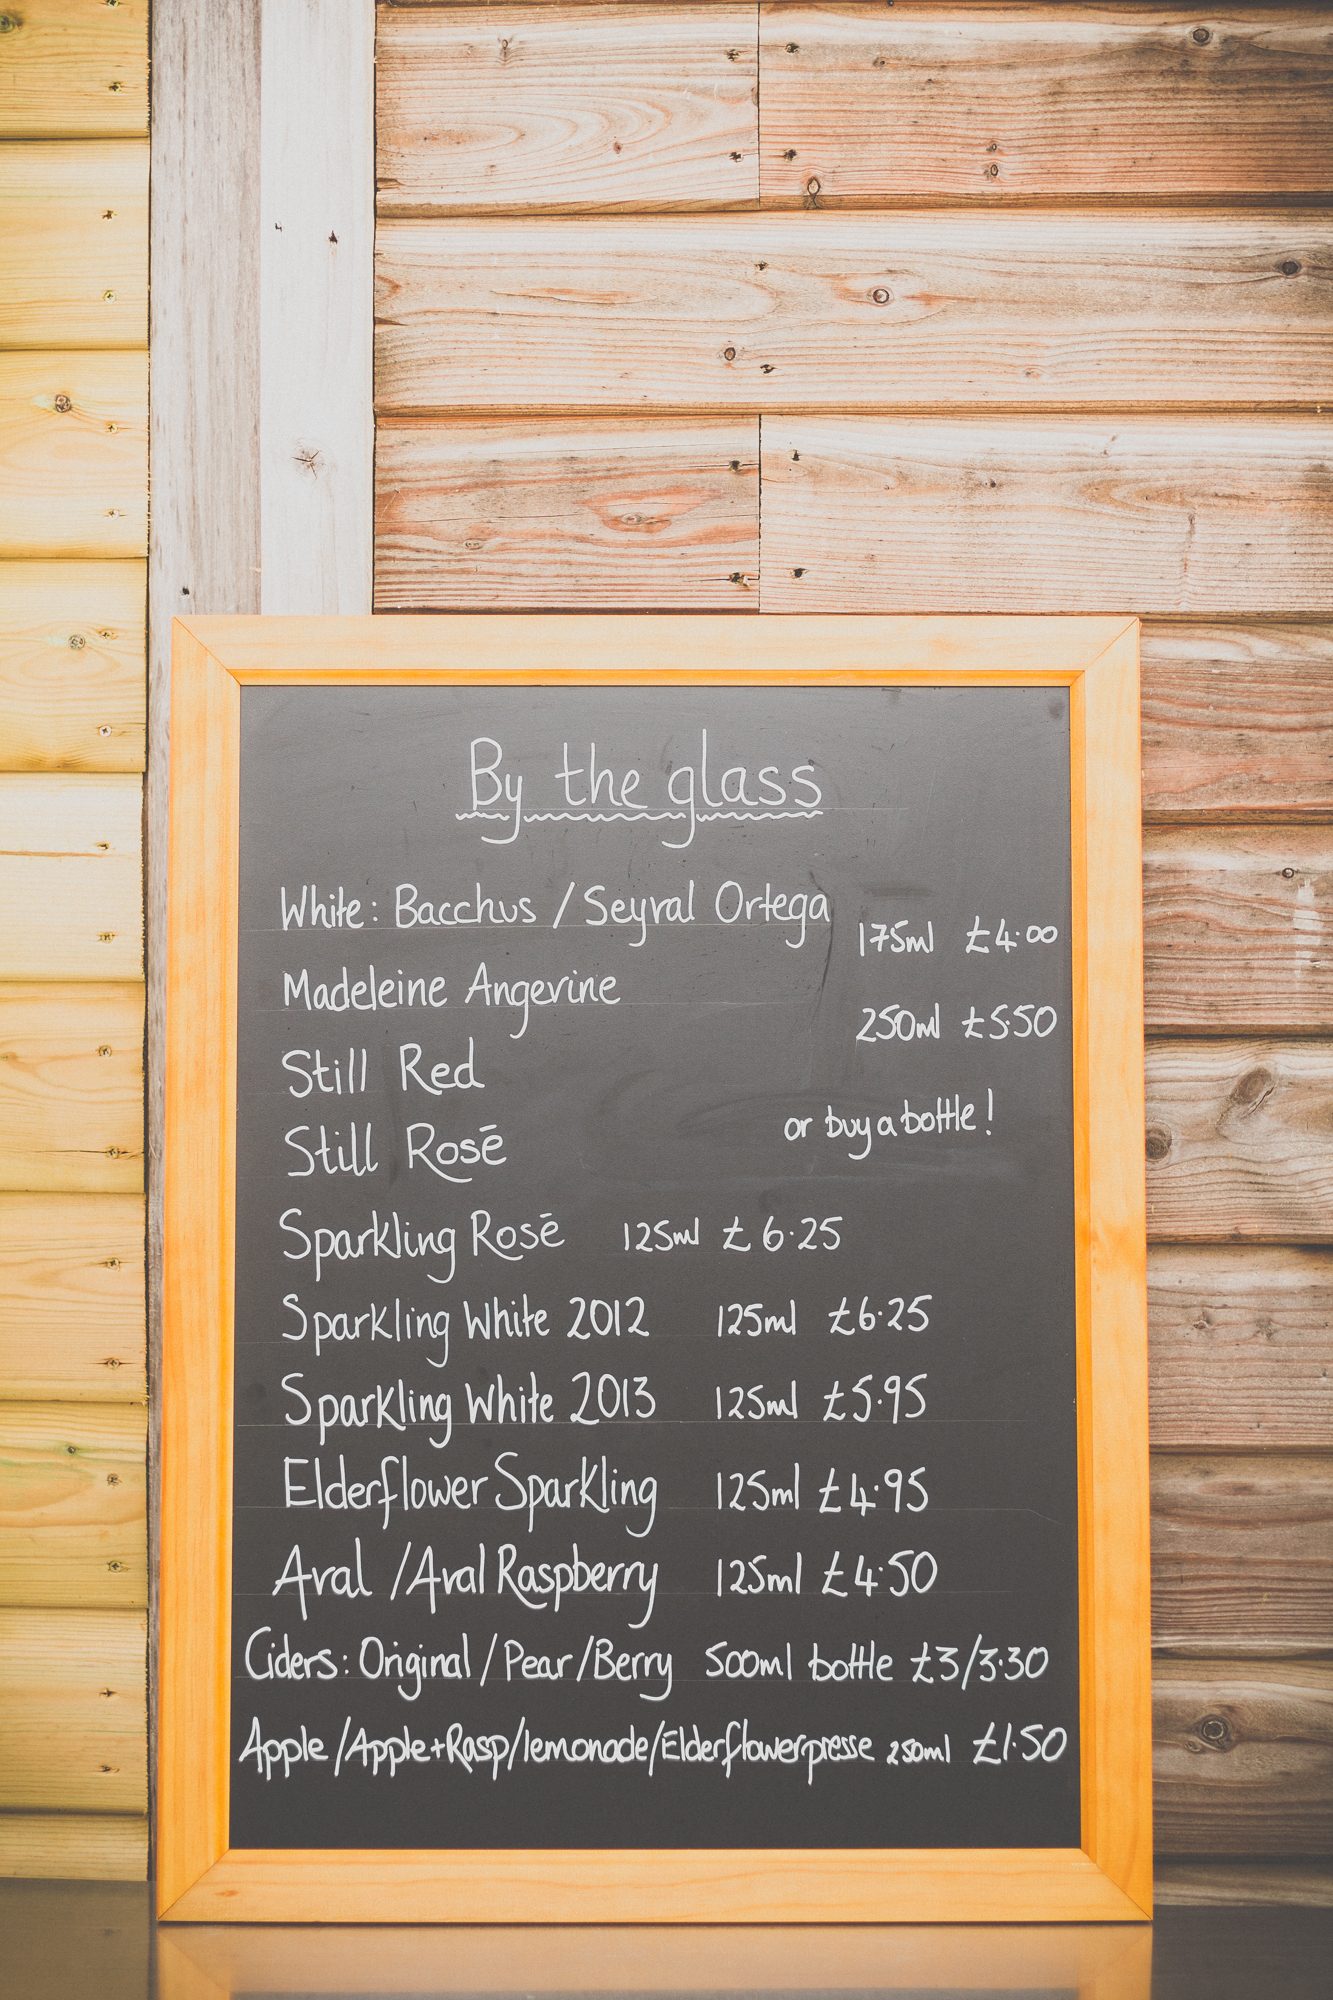 By the glass
White: Bacchus / Seyval Ortega
175ml £4.00
Madeleine Angevine
250ml £5.50
Still Red
or buy a bottle!
Still Rosé
Sparkling Rosé 125ml £6.25
Sparkling White 2012 125ml £6.25
Sparkling White 2013 125ml £5.95
Elderflower Sparkling 125ml £4.95
Aval / Aval Raspberry 125ml £4.50
Ciders: Original / Pear / Berry 500ml bottle £3/3.30
Apple / Apple + Rasp / lemonade / Elderflowerpresse 250ml £1.50